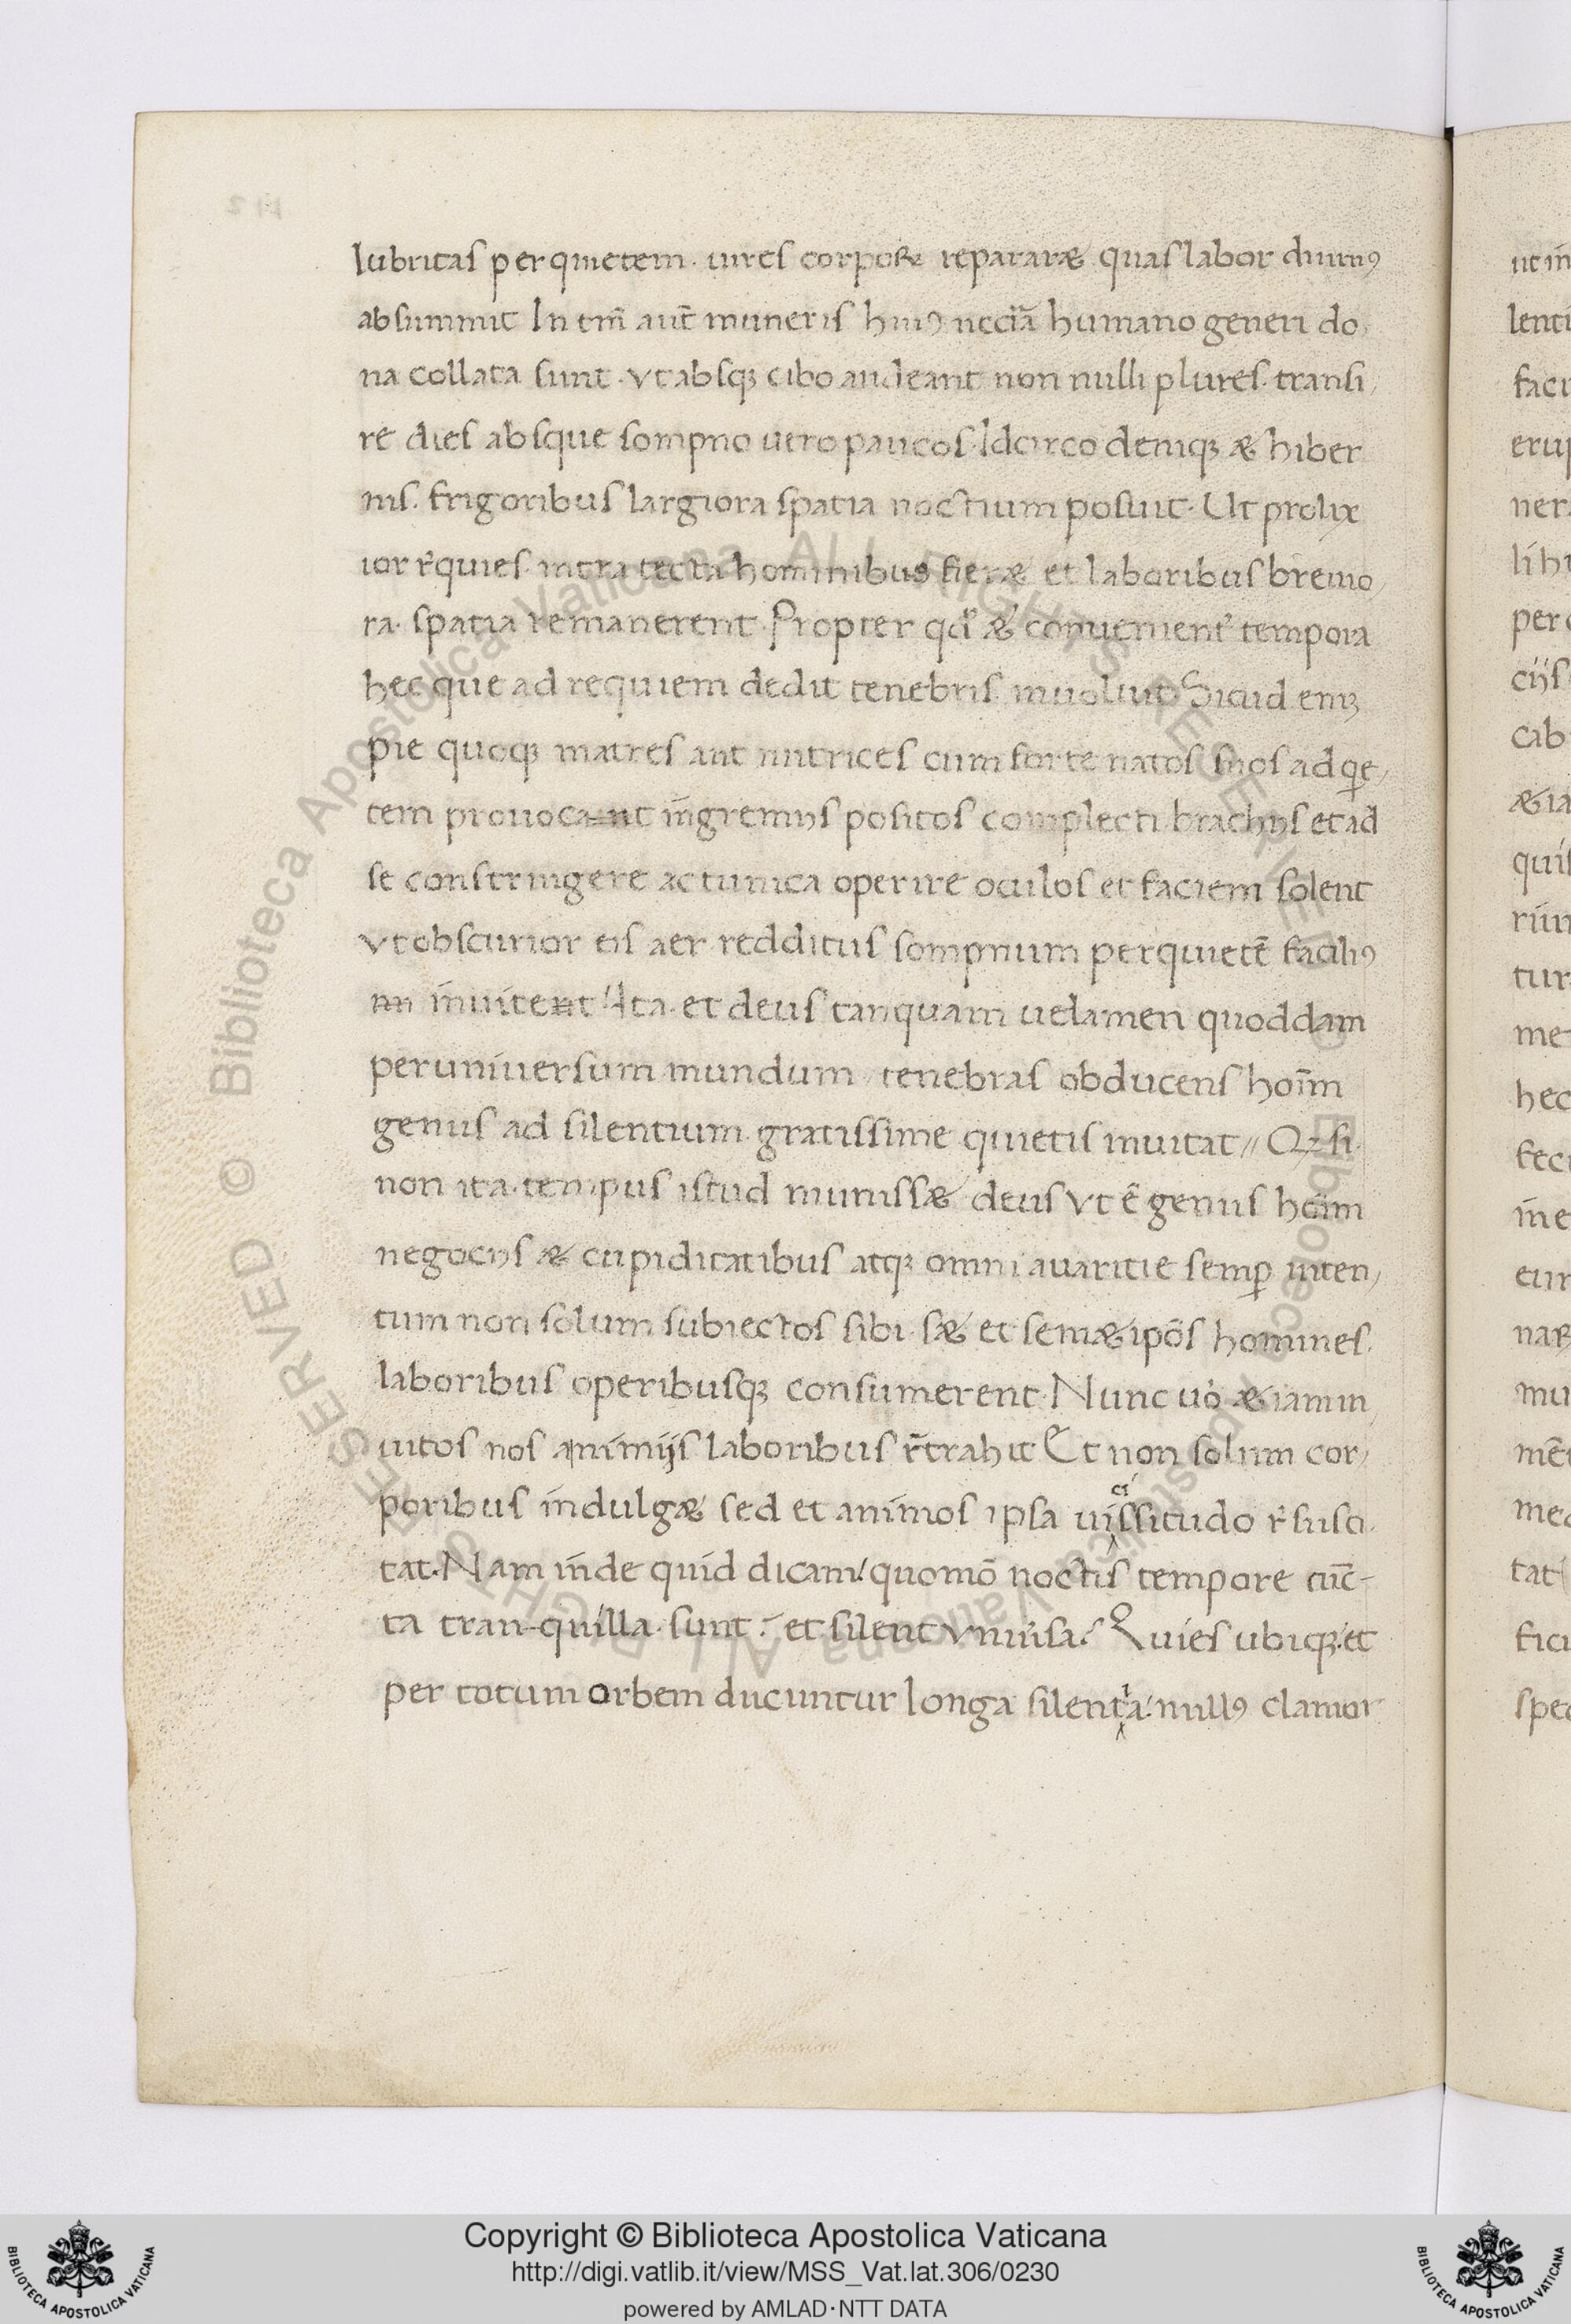 lubritas per quietem. uires corpoꝝ repararæ quas labor diurnꝯ
absummit In tm̄ aut̄ muneris huiꝯ nccīa humano generi do
na collata sunt. vt absqꝫ cibo audeant non nulli plures. transi,
re dies absque sompno uero paucos. Idcirco deniqꝫ æ hiber
nis. frigoribus largiora spatia noctium posuit. Ut prolix
ior r̄quies. intra tecta hominibus fieræ et laboribus breuio,
ra. spatia remanerent. Propter qď æ conuenient̉ tempora
hec que ad requiem dedit tenebris. inuoluit Sicud enīꝫ
pie quoqꝫ matres aut nutrices cum forte natos suos ad qe,
tem prouocant in gremijs positos complecti. brachijs et ad
se constringere ac tunica operire oculos et faciem solent
vt obscurior eis aer redditus sompnum per quietē faciliꝯ
inuitent Ita. et deus tanquam uelamen quoddam
per uniuersum mundum tenebras obducens hoīm
genus ad silentium. gratissime quietis inuitat // Qꝫ si.
non ita. tempus istud munissæ deus vt ē genus hoīm
negocijs æ cupiditatibus atqꝫ omni auaritie semꝑ inten,
tum non solum subiectos sibi. sæ et semæ ipōs homines.
laboribus operibusqꝫ consumerent. Nunc uo̓ æ iam in,
uitos nos a nimijs laboribus r̄trahit Et non solum cor,
poribus indulgæ sed et animos ipsa uicissitudo r̄susci.
tat. Nam inde quid dicam! quomō noctis tempore cūc-
ta tran-quilla. sunt: et silent vniu̓sa. Quies ubiqꝫ. et
per totum orbem ducuntur longa silentia. nullꝯ clamor
ut in
lenti
faci
erup
ner
li hu
per
cijs
cab
æ ia
quis
riin
tur
me
hec
fect
in e
eur
naꝝ
mu
mēt
med
tat
fici
spec
Copyright © Biblioteca Apostolica Vaticana
http://digi.vatlib.it/view/MSS_Vat.lat.306/0230
powered by AMLAD·NTT DATA
BIBLIOTECA APOSTOLICA VATICANA
BIBLIOTECA APOSTOLICA VATICANA